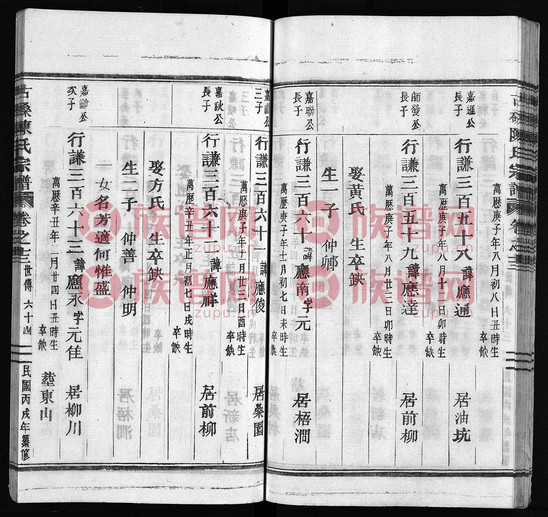 陳氏宗譜 卷之三
嘉通公長子
行謙三百五十八 諱應通 居油坑
萬曆庚子年八月初八日丑時生 卒缺
師發公長子
行謙三百五十九 諱應達 居前柳
萬曆庚子年八月十日卯時生 卒缺
嘉聯公長子
行謙三百六十 諱應南 字元 居梧澗
萬曆庚子年八月廿三日卯時生 卒缺
娶黃氏 生卒缺
生一子 仲卿
三子
行謙三百六十一 諱應俊 居桑園
萬曆庚子年十一月廿三日酉時生 卒缺
嘉秋公長子
行謙三百六十二 諱應麟 居前柳
萬曆辛丑年正月初七日未時生 卒缺
娶方氏 生卒缺 居梧澗
生二子 仲善 仲明
一女名芳適何惟盛
次子
行謙三百六十三 諱應永 字元佳 居柳川
萬曆辛丑年二月廿四日丑時生 卒缺 葬東山
陳氏宗譜 卷之三 世傳 六十四 民國丙戌年纂修
族谱网
zupu.cn